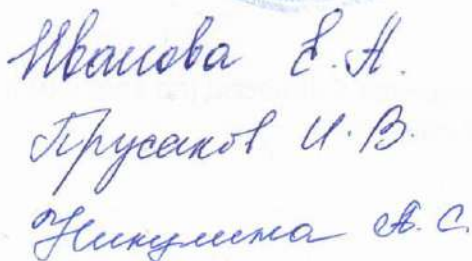 Иванова Е.А.
Прусаков И.В.
Никулина А.С.